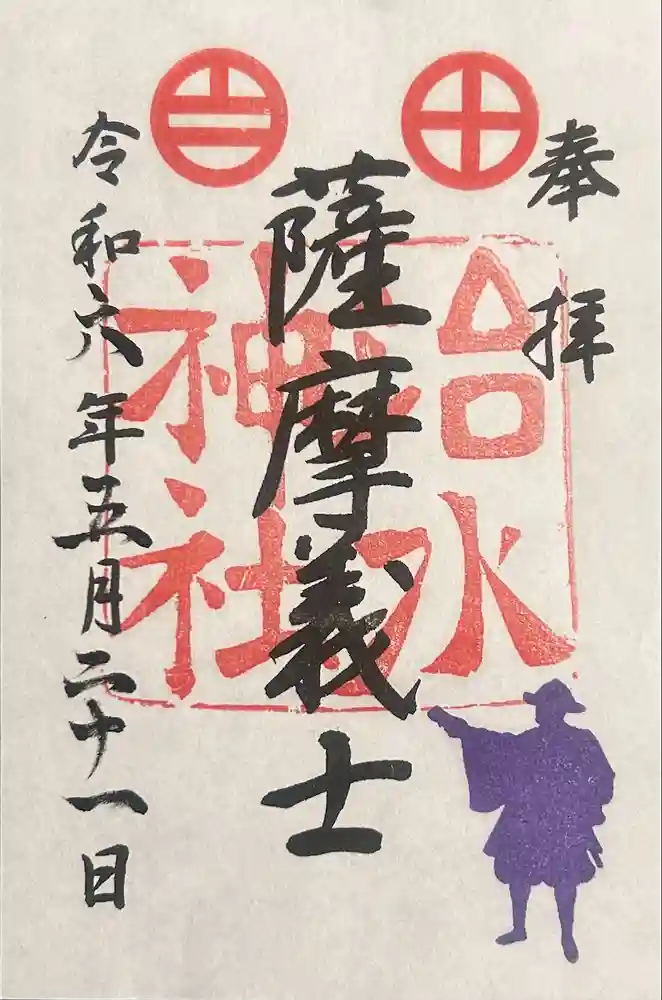 奉拝
治水
神社
薩摩義士
令和六年五月二十一日